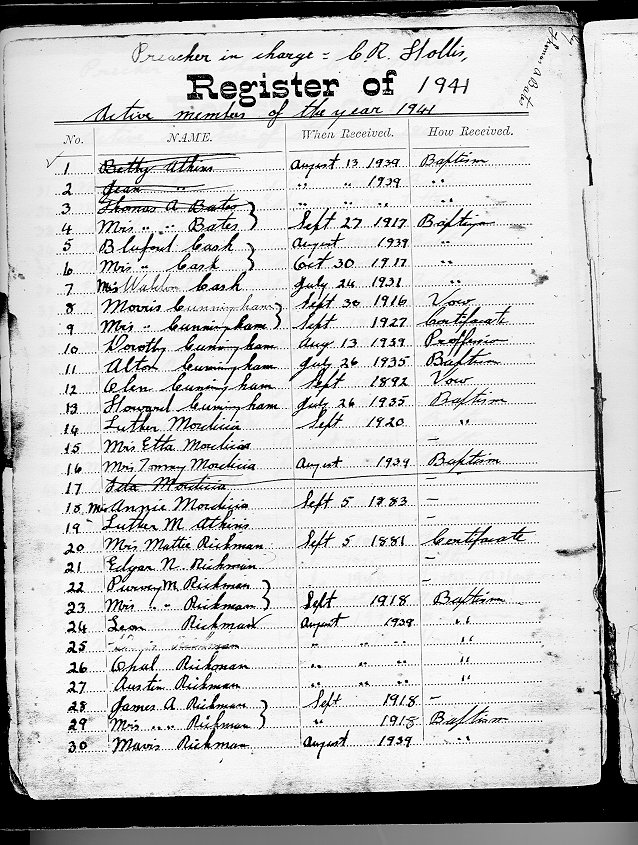 Preacher in charge = C R. Hollis,
Thomas A Bates
Register of 1941
Active members of the year 1941
No. NAME. When Received. How Received.
1 Betty Atkins August 13 1939 Baptism
2 Jean " " " " 1939 " "
3 Thomas A Bates " " " " " "
4 Mrs " " Bates Sept 27 1917 Baptism
5 Bluford Cash August 1939 "
6 Mrs " Cash Oct 30 1917 "
7 Mrs Cash July 24 1931 "
8 Morris Cunningham Sept 30 1916 Vow
9 Mrs " Cunningham Sept 1927 Certificat
10 Dorothy Cuningham Aug 13 1939 Proffesion
11 Alton Cuningham July 26 1935 Baptism
12 Olen Cuningham Sept 1892 Vow
13 Howard Cuningham July 26 1935 Baptism
14 Luther Mordicia Sept 1920 "
15 Mrs Etta Mordicia –
16 Mrs Tommy Mordicia August 1939 Baptism
17 Ida Mordicia –
18 Mrs Angie Mordicia Sept 5 1883 –
19 Luther M Atkins –
20 Mrs Mattie Rickman Sept 5 1881 Centificate
21 Edgar N. Rickman –
22 M Rickman –
23 Mrs " " Rickman Sept 1918 Baptism
24 Leon Rickman August 1939 "
25 " " " "
26 Opal Rickman " " " "
27 Austin Rickman " " " "
28 James A Rickman Sept 1918 –
29 Mrs " " Rickman " 1918 Baptism
30 Mavis Rickman August 1939 "